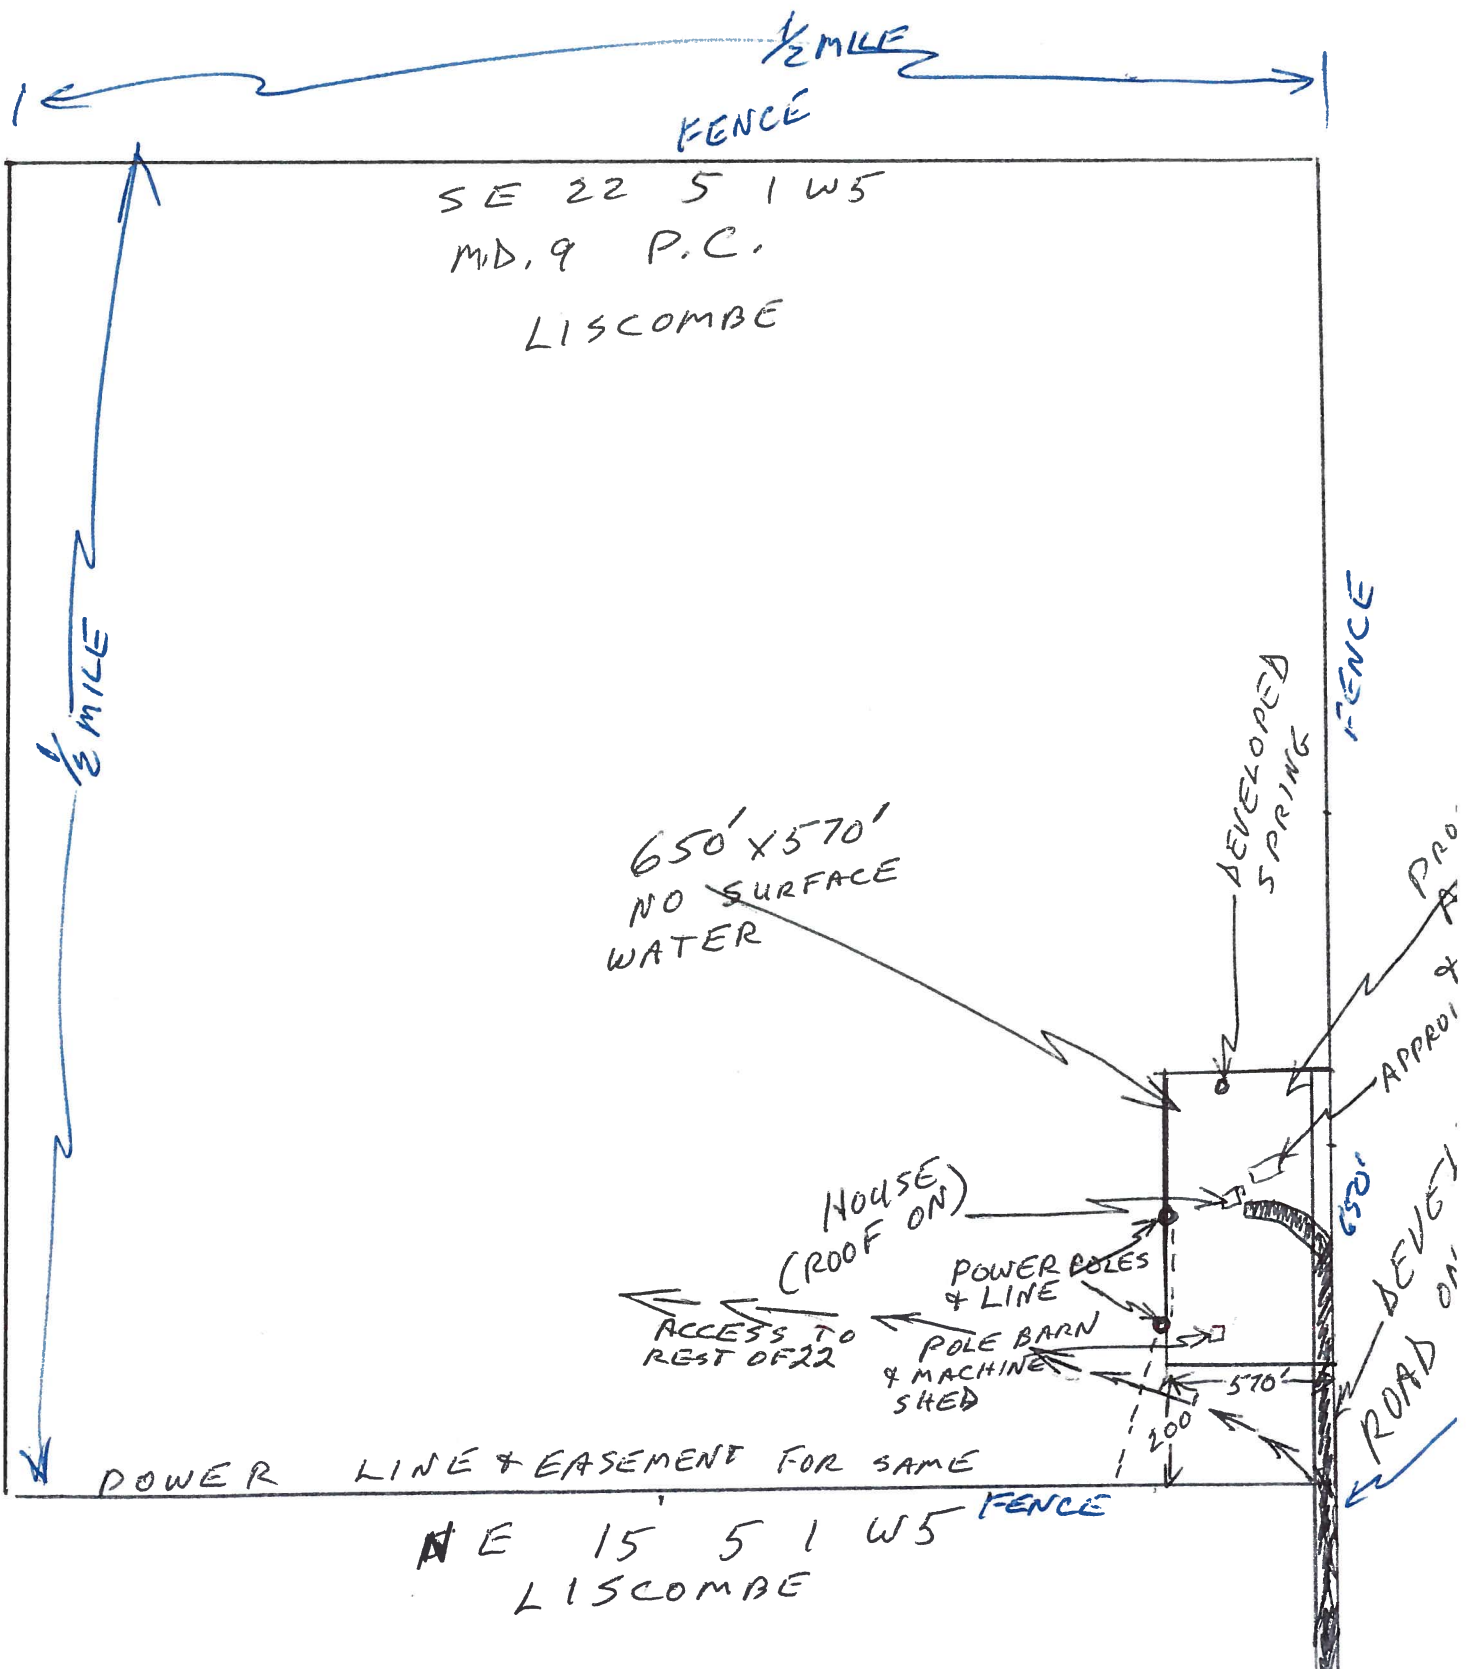 1/2 MILE
FENCE
SE 22 5 1 W5
M.D. 9 P.C.
LISCOMBE
1/2 MILE
FENCE
DEVELOPED
SPRING
650' X 570'
NO SURFACE
WATER
PRO
APPROX
HOUSE
(ROOF ON)
650'
POWER POLES
& LINE
DEVEL
ROAD
ON
ACCESS TO
REST OF 22
POLE BARN
& MACHINE
SHED
570'
200
POWER LINE & EASEMENT FOR SAME
FENCE
NE 15 5 1 W5
LISCOMBE